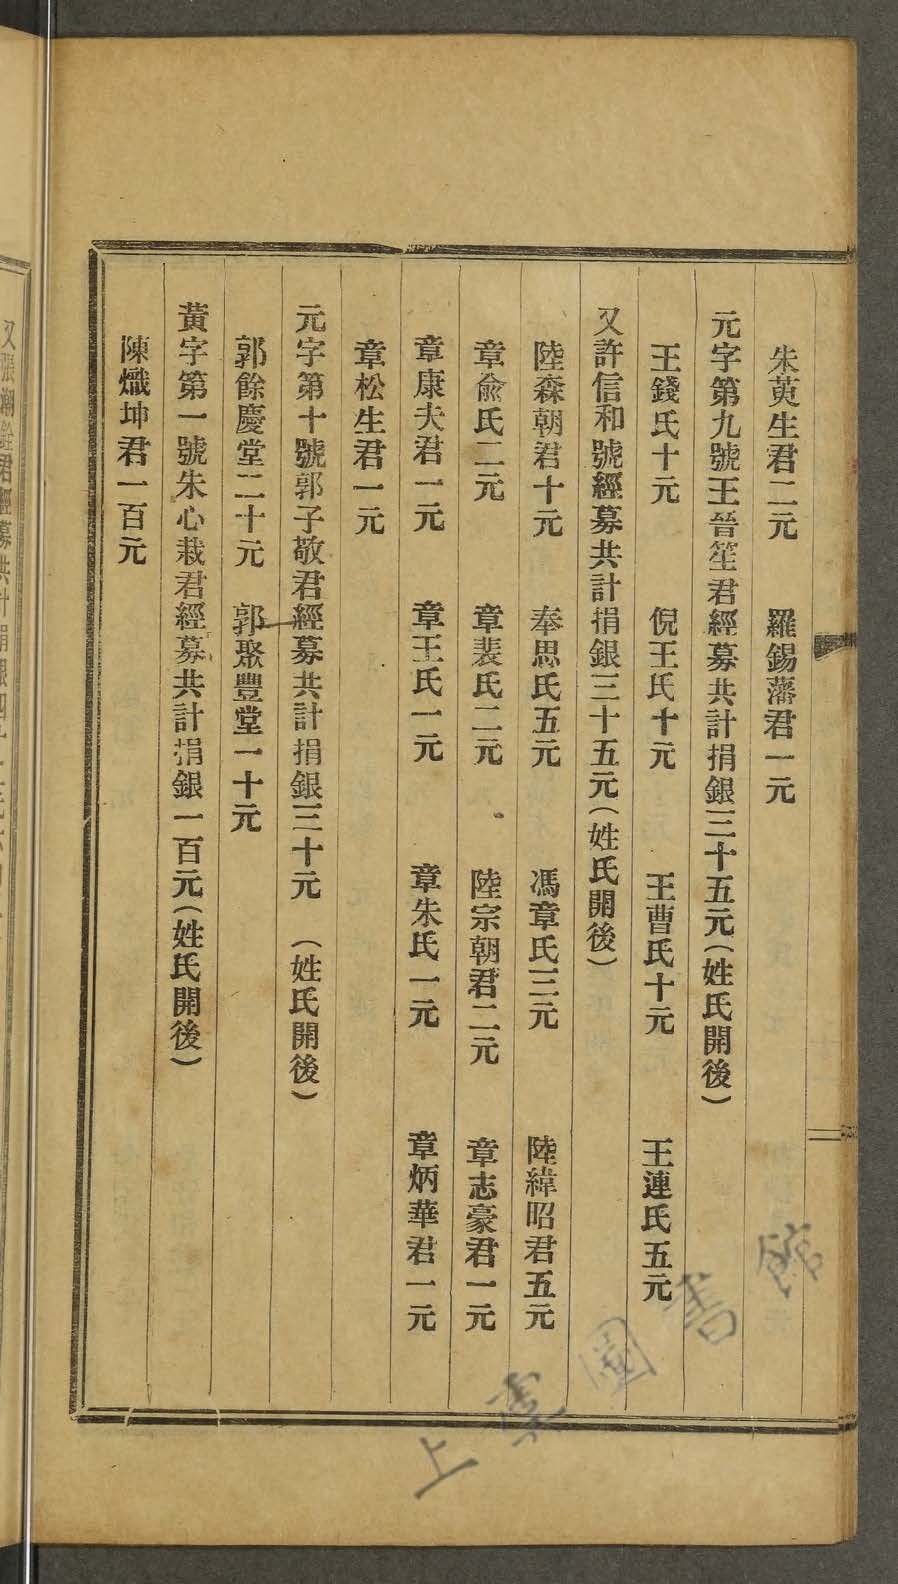 朱萸生君二元　羅錫藩君一元
元字第九號王晉笙君經募共計捐銀三十五元（姓氏開後）
王錢氏十元　倪王氏十元　王曹氏十元　王連氏五元
又許信和號經募共計捐銀三十五元（姓氏開後）
陸森朝君十元　奉思氏五元　馮章氏三元　陸緯昭君五元
章俞氏二元　章裴氏二元　陸宗朝君二元　章志豪君一元
章康夫君一元　章王氏一元　章朱氏一元　章炳華君一元
章松生君一元
元字第十號郭子敬君經募共計捐銀三十元　（姓氏開後）
郭餘慶堂二十元　郭聚豐堂一十元
黃字第一號朱心栽君經募共計捐銀一百元（姓氏開後）
陳熾坤君一百元
上虞圖書館